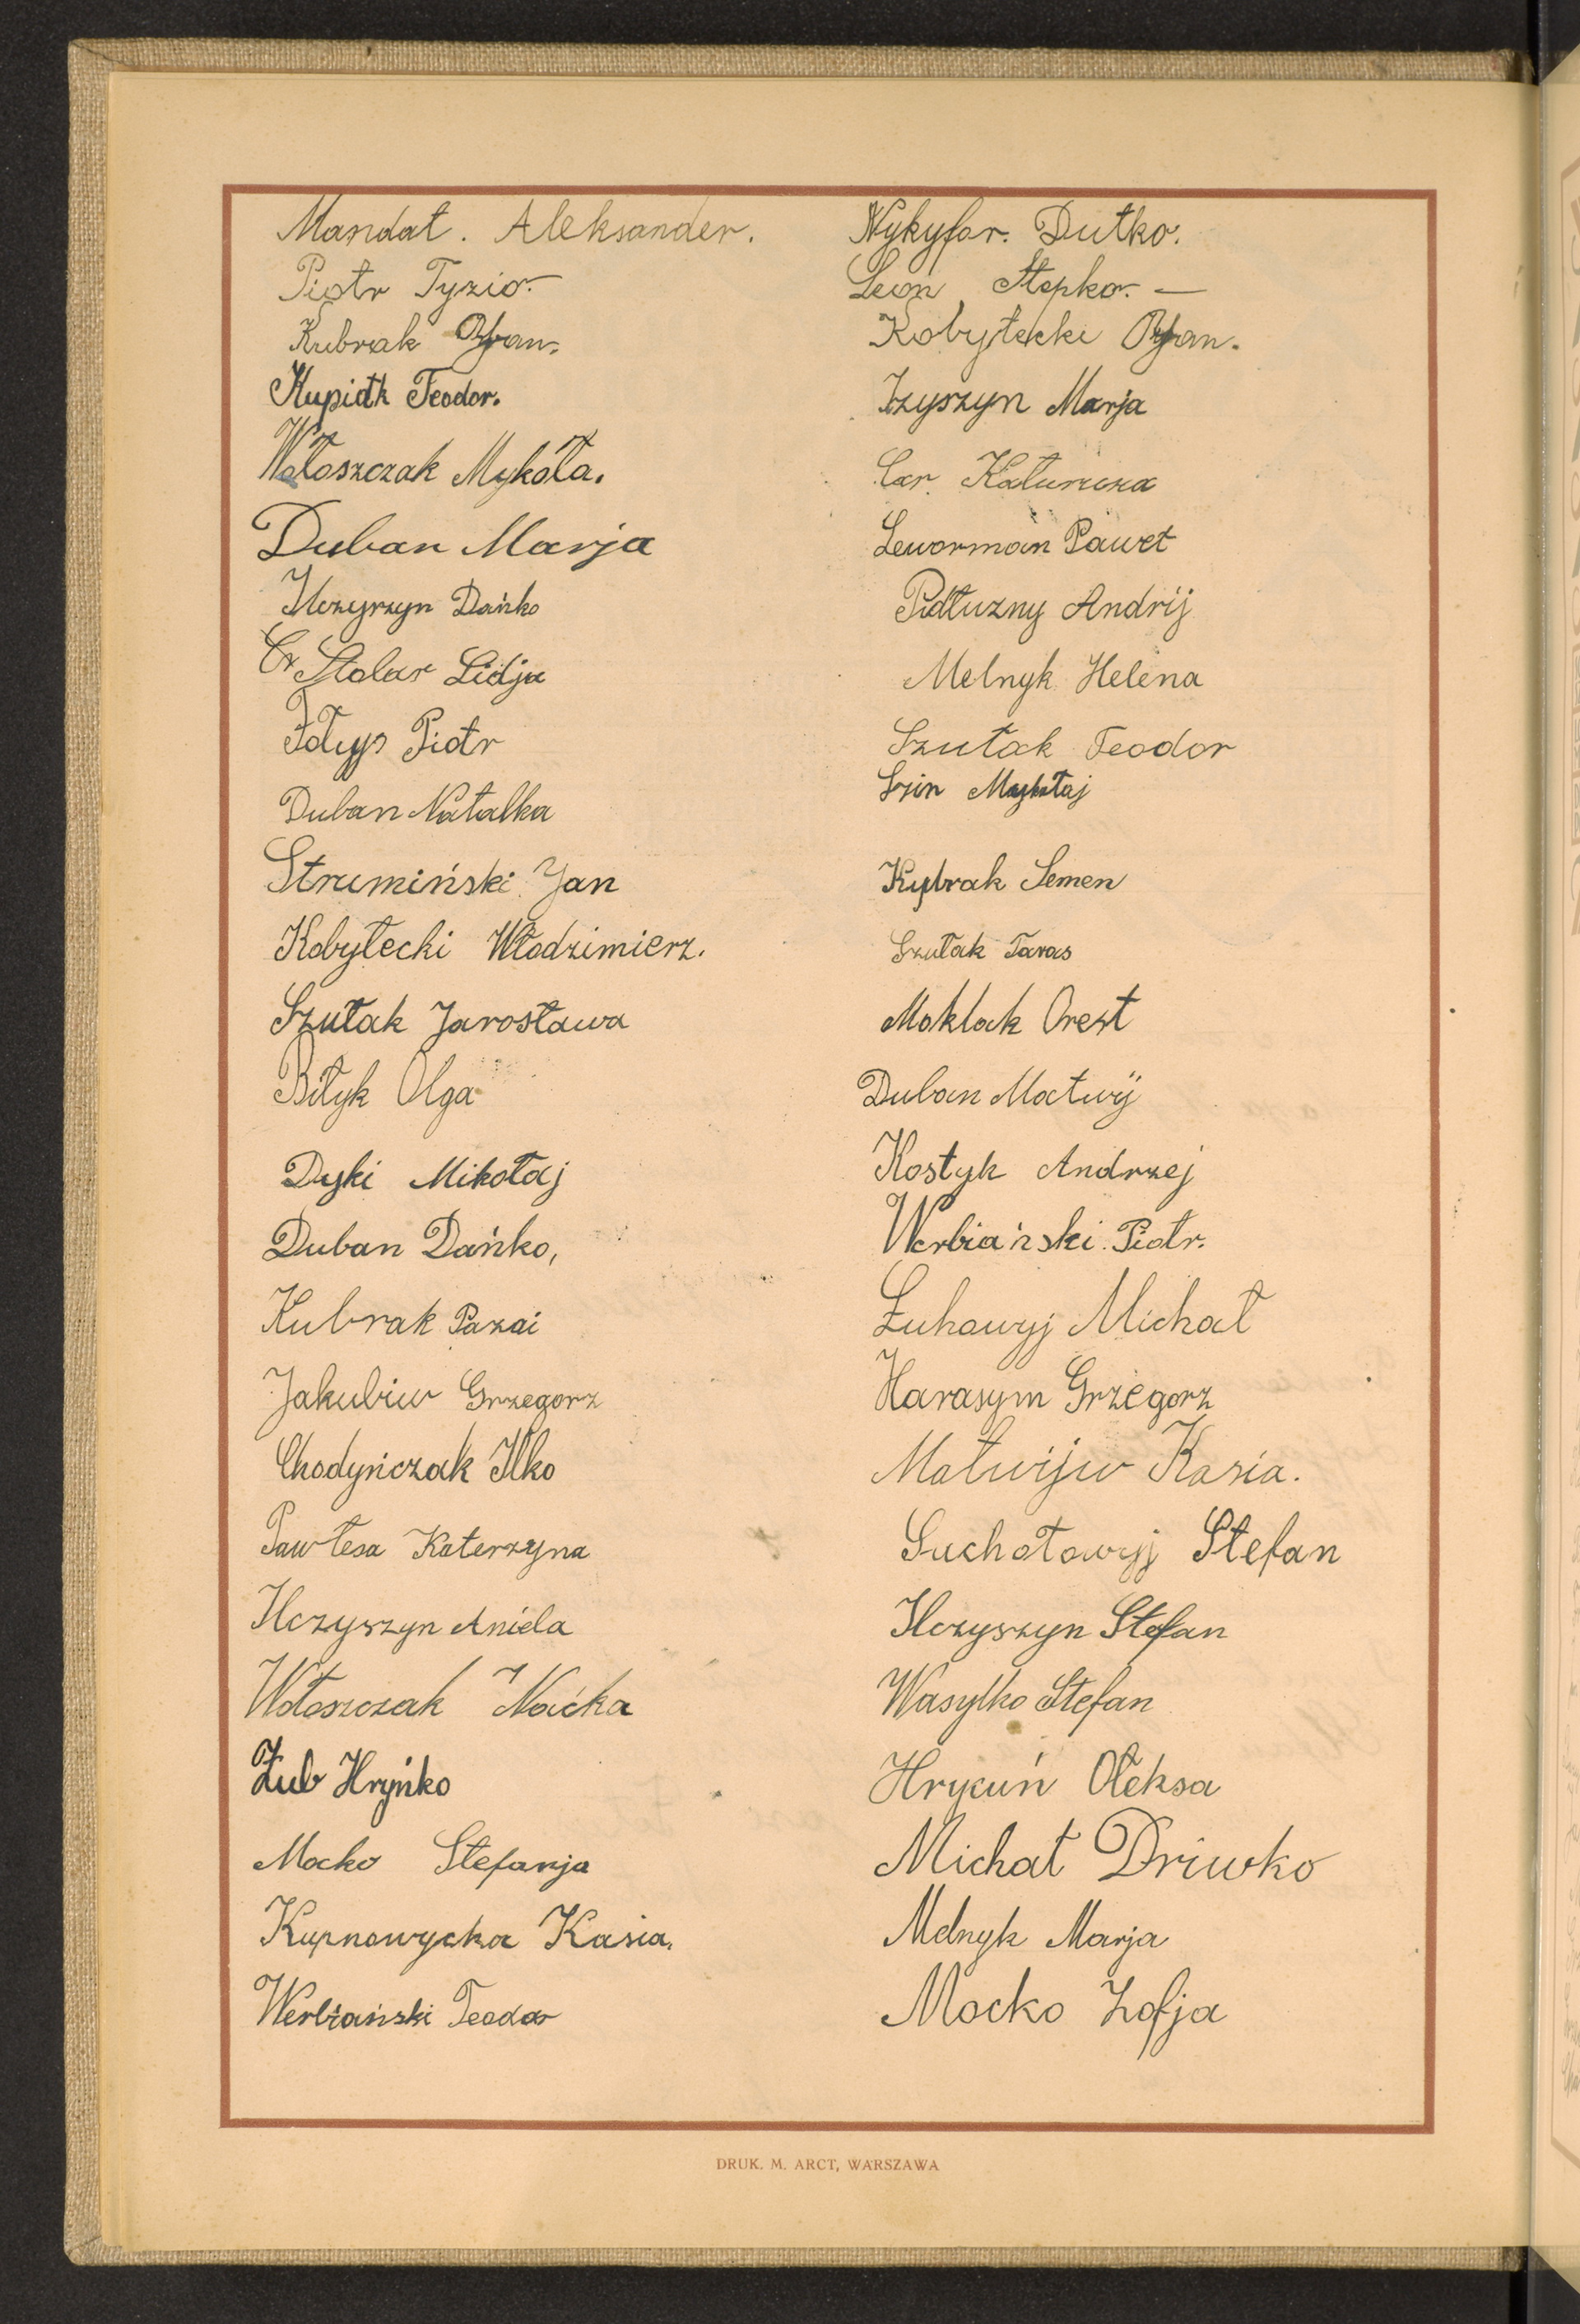 Mandat. Aleksander.
Piotr Tyzio.
Kubrak
Kupiak Teodor.
Wołoszczak Mykóła.
Duban Marja
Ilczyszyn Dańko
Stolar Lidja
Fołys Piotr
Duban Natalka
Strumiński Jan
Kobyłecki Włodzimierz.
Szułak Jarosława
Biłyk Olga
Dyki Mikołaj
Duban Dańko,
Kubrak Pazai
Jakubiw Grzegorz
Chodyńczak Ilko
Pawłesa Katerzyna
Ilczyszyn Aniela
Wołoszczak Naćka
Żub Hryńko
Mocko Stefanja
Kupnowycka Kasia.
Werbiański Teodor
Nykyfor. Dutko.
Leon Stepko. —
Kobyłecki
Marja
Car
Leworman Paweł
Pidłuzny Andrij
Melnyk Helena
Szułak Teodor
Kybrak Semen
Szułak Taras
Moklak Orest
Duban Matwij
Kostyk Andrzej
Werbiański Piotr.
Łuhowyj Michał
Harasym Grzegorz
Matwijiw Kasia.
Suchotowyj Stefan
Ilczyszyn Stefan
Wasylko Stefan
Hrycuń Ołeksa
Michał Driwko
Melnyk Marja
Mocko Zofja
DRUK. M. ARCT, WARSZAWA